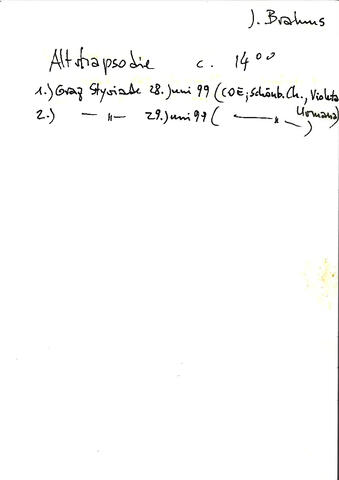 J. Brahms
Altrhapsodie c. 14°°
1.) Graz Styriarte 28. Juni 99 (COE; Schönb. Ch., Violeta Urmana)
2.) — " — 29. Juni 99 ( — " — )